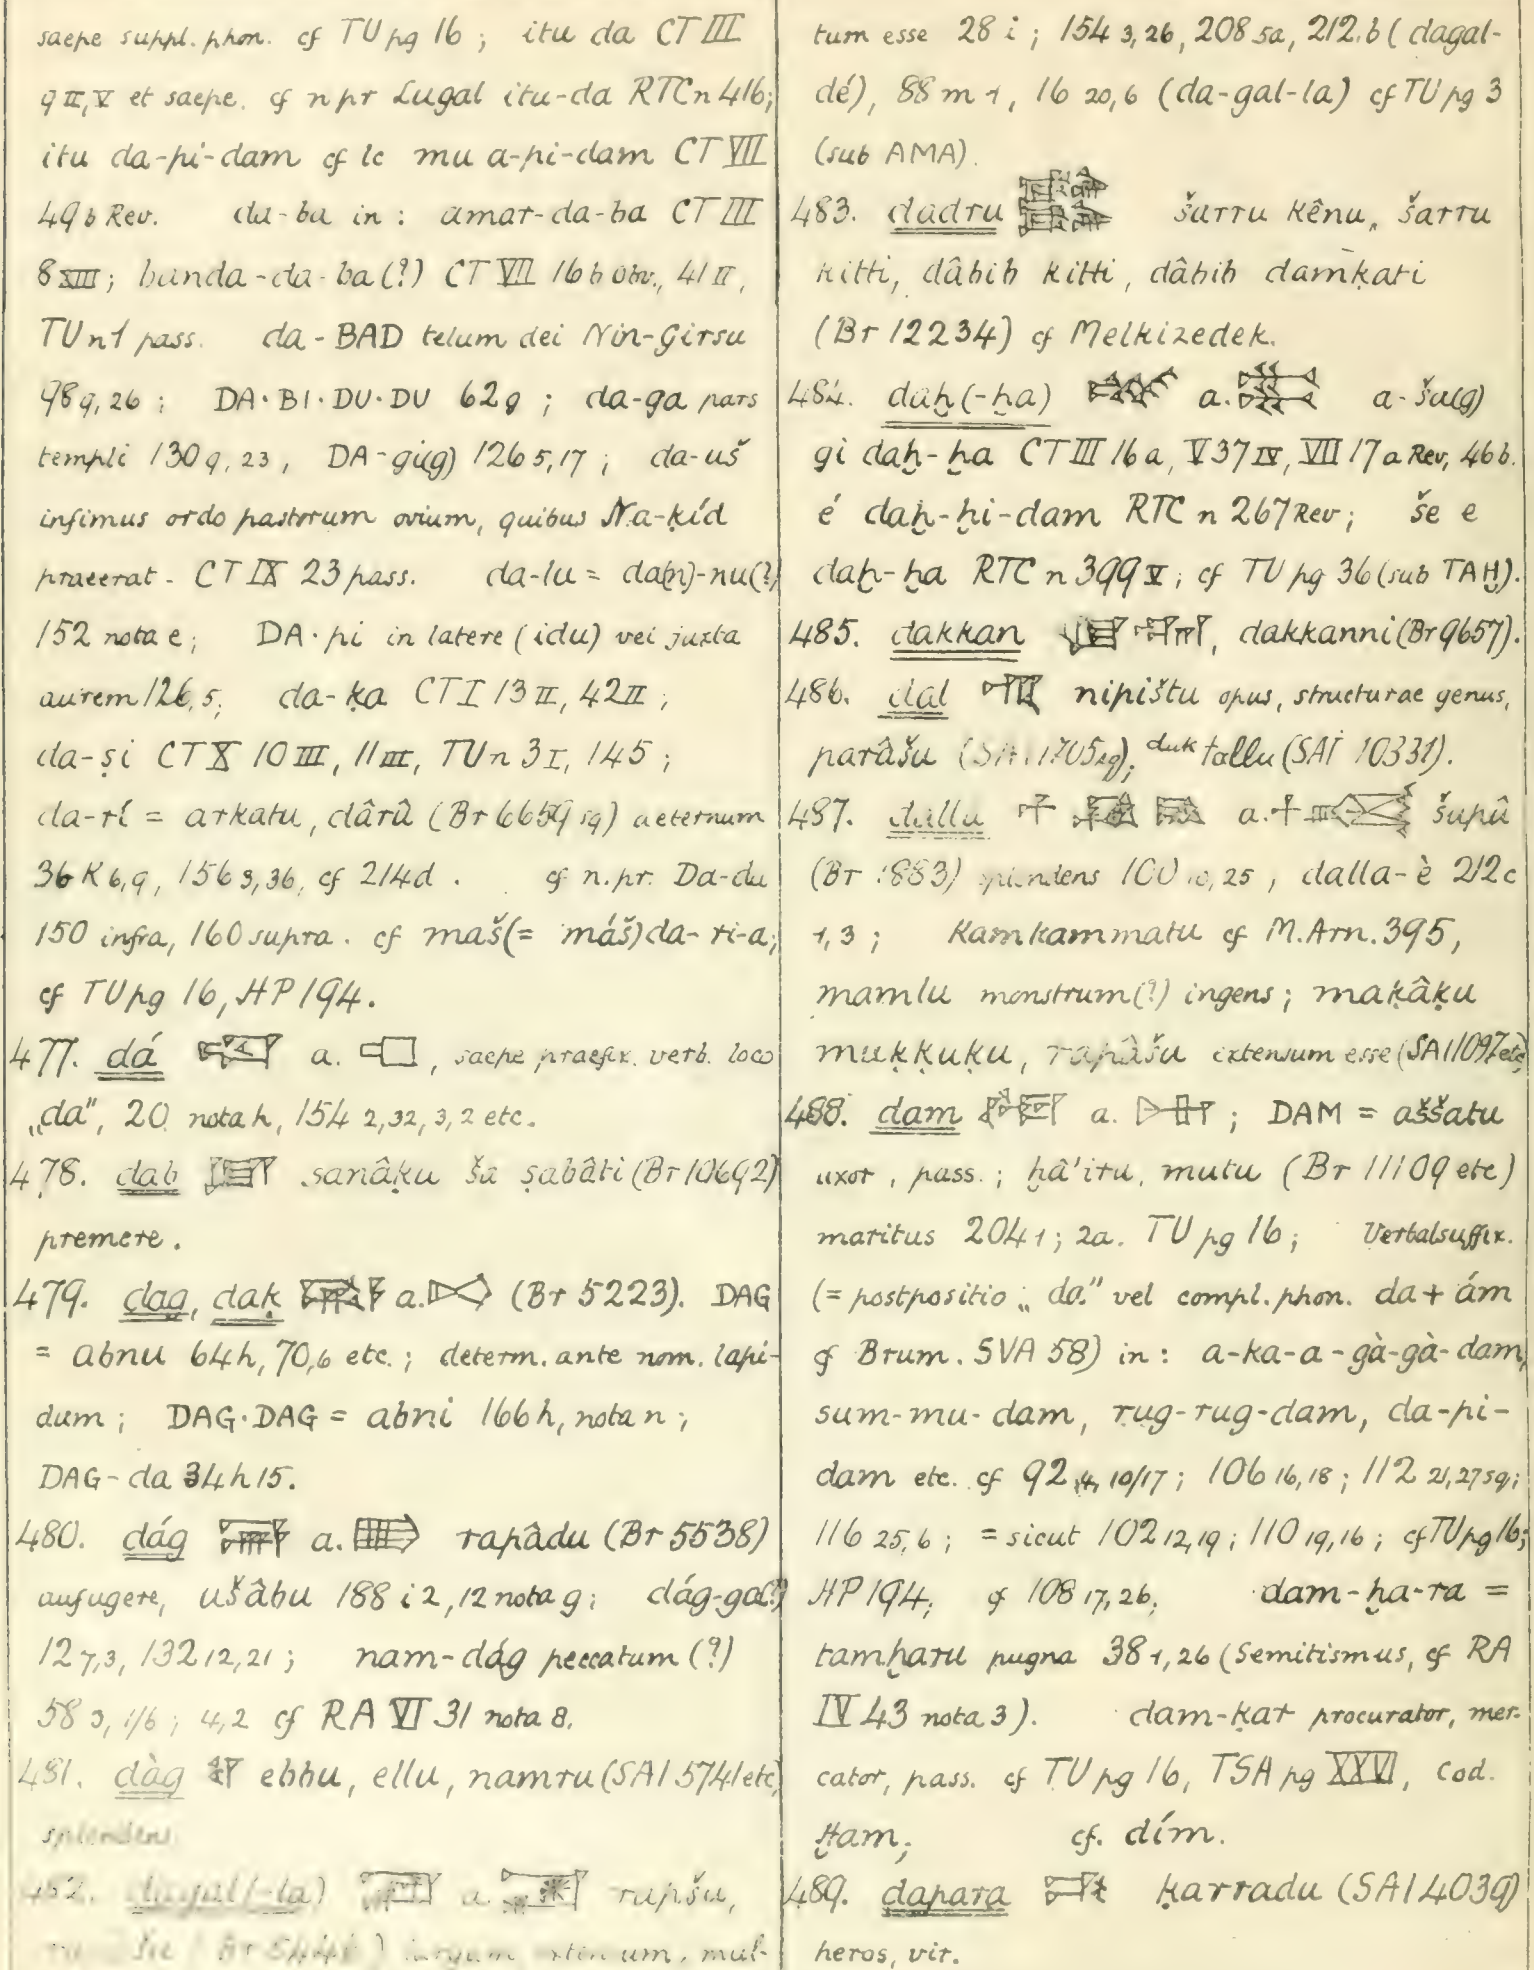 saepe suppl. phon. cf TU pg 16; itu da CT III
9 II, V et saepe. cf n pr Lugal itu-da RTC n 416;
itu da-pi-dam cf lc mu a-pi-dam CT VII
49 b Rev. da-ba in: amar-da-ba CT III
8 XIII; banda-da-ba(?) CT VII 16 b obv., 41 II,
TU n 1 pass. da-BAD telum dei Nin-Girsu
98 9,26; DA·BI·DU·DU 62 9; da-ga pars
templi 130 9,23, DA-gi(g) 126 5,17; da-uš
infimus ordo pastorum ovium, quibus Na-ḳíd
praeerat - CT IX 23 pass. da-lu = da(n)-nu(?)
152 nota e; DA·pi in latere (idu) vel juxta
aurem 126,5; da-ḳa CT I 13 II, 42 II;
da-ṣi CT X 10 III, 11 III, TU n 3 I, 145;
da-rí = arkatu, dârû (Br 6659 sq) aeternum
36 K 6,9, 156 3,36, cf 214d. cf n.pr. Da-du
150 infra, 160 supra. cf maš(= máš)da-ri-a;
cf TU pg 16, HP 194.
477. dá a. , saepe praefix. verb. loco
„da", 20 nota h, 154 2,32, 3,2 etc.
478. dab sanâḳu ša ṣabâti (Br 10692)
premere.
479. dag, daḳ a. (Br 5223). DAG
= abnu 64h, 70,6 etc.; determ. ante nom. lapi-
dum; DAG·DAG = abni 166h, nota n;
DAG-da 34 h 15.
480. dág a. rapâdu (Br 5538)
aufugere, ušâbu 188 i 2,12 nota g; dág-ga(?)
12 7,3, 132 12,21; nam-dág peccatum (?)
58 3, 1/6; 4,2 cf RA VI 31 nota 8.
481. dàg ebbu, ellu, namru (SAI 5741 etc)
splendens.
482. dagal(-la) a. rapšu,
mul-
tum esse 28 i; 154 3,26, 208 5a, 212.b (dagal-
dé), 88 m 1, 16 20,6 (da-gal-la) cf TU pg 3
(sub AMA).
483. dadru šarru kênu, šarru
kitti, dâbib kitti, dâbib damḳati
(Br 12234) cf Melkizedek.
484. daḫ(-ḫa) a. a-ša(g)
gi daḫ-ḫa CT III 16 a, V 37 IV, VII 17 a Rev, 46 b.
é daḫ-ḫi-dam RTC n 267 Rev; še e
daḫ-ḫa RTC n 399 V; cf TU pg 36 (sub TAḪ).
485. dakkan , dakkanni (Br 9657).
486. dal nipištu opus, structurae genus,
parâšu ; duk tallu (SAI 10331).
487. dalla a. šupû
splendens 100 10,25, dalla-è 212 c
1,3; Kamkammatu cf M.Arn. 395,
mamlu monstrum(?) ingens; maḳâḳu
muḳḳuḳu, rapâšu extensum esse (SAI 1097 etc)
488. dam a. ; DAM = aššatu
uxor, pass.; ḫâ'iru, mutu (Br 11109 etc)
maritus 204 1; 2a. TU pg 16; Verbalsuffix.
(= postpositio „da" vel compl. phon. da + ám
cf Brum. SVA 58) in: a-ka-a-gà-gà-dam,
sum-mu-dam, rug-rug-dam, da-pi-
dam etc. cf 92,4, 10/17; 106 16,18; 112 21,27 sq;
116 25,6; = sicut 102 12,19; 110 19,16; cf TU pg 16;
HP 194; cf 108 17,26; dam-ḫa-ra =
tamḫaru pugna 38 1,26 (Semitismus, cf RA
IV 43 nota 3). dam-kar procurator, mer-
cator, pass. cf TU pg 16, TSA pg XXVI, Cod.
Ḫam; cf. dím.
489. dapara ḳarradu (SAI 4039)
heros, vir.